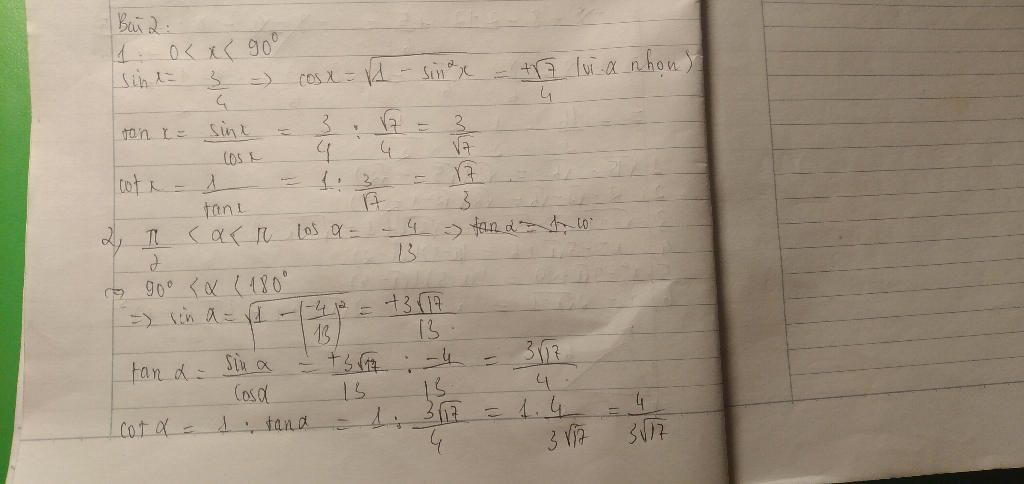 Bài 2:
1: 0 < x < 90°
sin x = 3/4 => cos x = √(1 - sin²x) = +√7/4 (vì α nhọn)
tan x = sin x/cos x = 3/4 : √7/4 = 3/√7
cot x = 1/tan x = 1 : 3/√7 = √7/3
2, π/2 < α < π cos α = -4/13 => tan α = 1.
⇔ 90° < α < 180°
=> sin α = √(1 - (-4/13)²) = +3√17/13
tan α = sin α/cos α = +3√17/13 : -4/13 = 3√17/4
cot α = 1 : tan α = 1 : 3√17/4 = 1 . 4/3√17 = 4/3√17